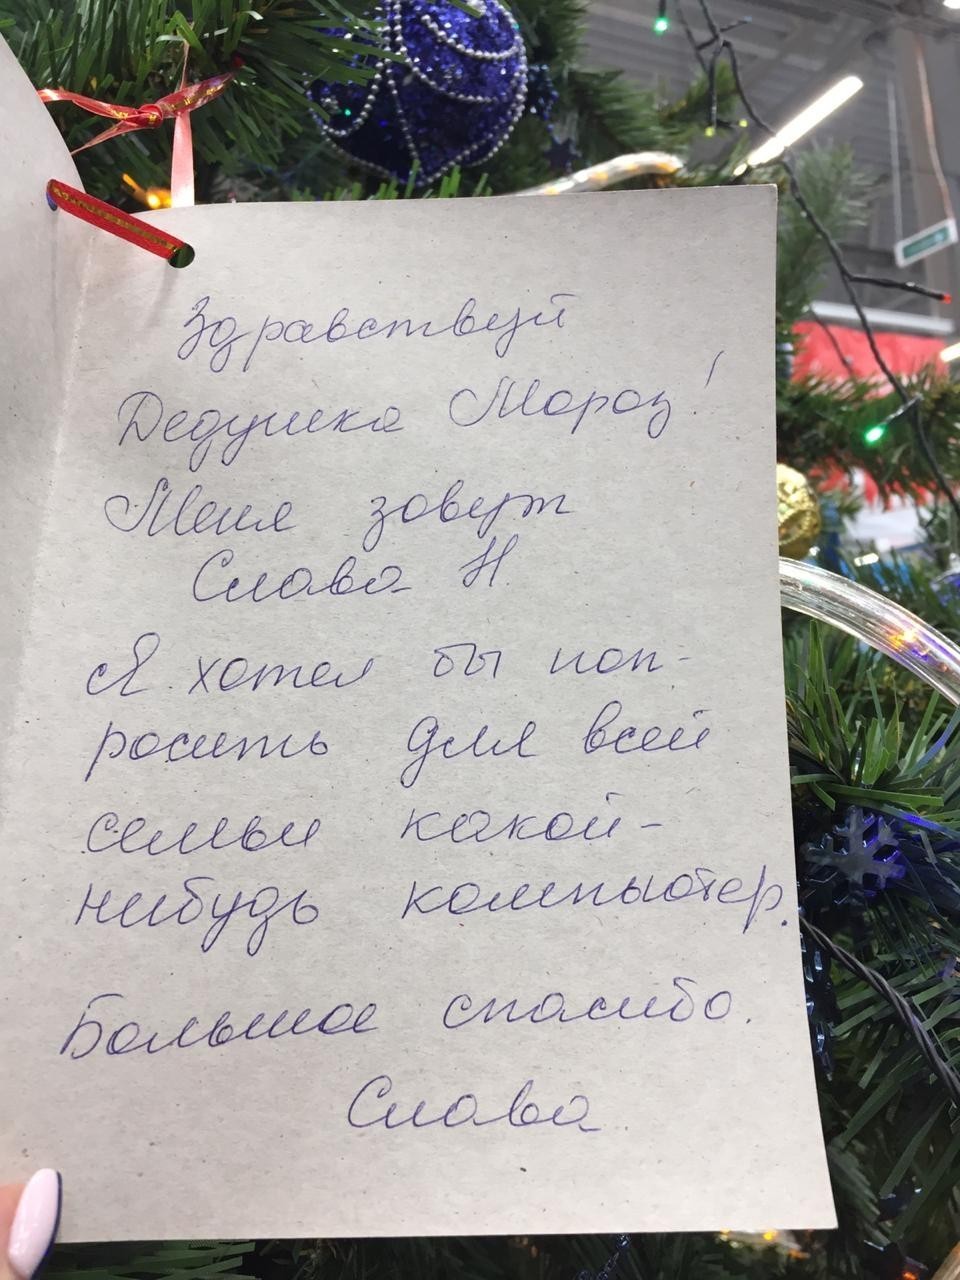 Здравствуй
Дедушка Мороз!
Меня зовут
Слава Н.
Я хотел бы поп-
росить для всей
семьи какой-
нибудь компьютер.
Большое спасибо.
Слава